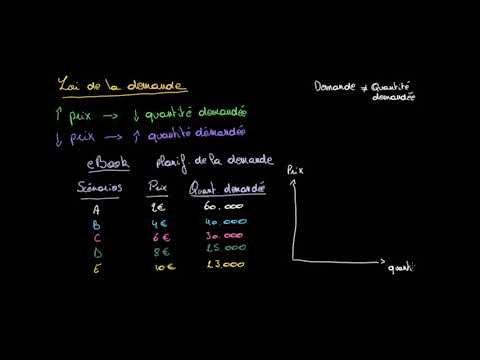 Loi de la demande
Demande ≠ Quantité
demandée
↑ prix → ↓ quantité demandée
↓ prix → ↑ quantité demandée
eBook planif. de la demande
Scénarios Prix Quant demandée
A 2€ 60.000
B 4€ 40.000
C 6€ 30.000
D 8€ 25.000
E 10€ 23.000
Prix
quanti